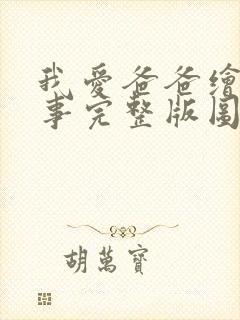 我愛爸爸繪
事完整版圖
胡萬寶